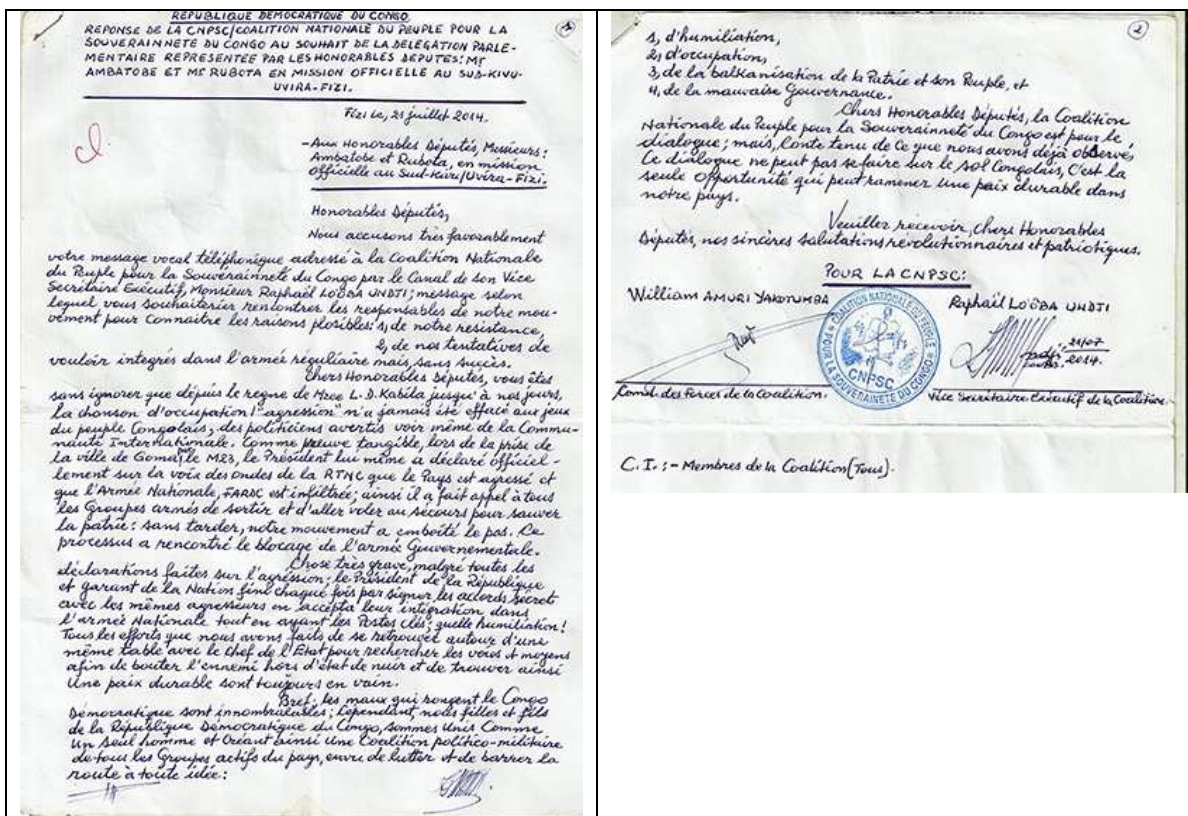 REPUBLIQUE DEMOCRATIQUE DU CONGO
REPONSE DE LA CNPSC/COALITION NATIONALE DU PEUPLE POUR LA
SOUVERAINNETE DU CONGO AU SOUHAIT DE LA DELEGATION PARLE-
MENTAIRE REPRESENTEE PAR LES HONORABLES DEPUTES: Mr
AMBATOBE ET Mr RUBOTA EN MISSION OFFICIELLE AU SUD-KIVU-
UVIRA-FIZI.
1
Fizi le, 21 juillet 2014.
-Aux Honorables Députés, Messieurs:
Ambatobe et Rubota, en mission
officielle au Sud-Kivu/Uvira-Fizi.
Honorables Députés,
Nous accusons très favorablement
votre message vocal téléphonique adressé à la Coalition Nationale
du Peuple pour la Souveraineté du Congo par le Canal de son Vice
Secrétaire Exécutif, Monsieur Raphaël LOÖBA UNDJI; message selon
lequel vous souhaiterier rencontrer les responsables de notre mou-
vement pour connaitre les raisons plosibles: 1, de notre resistance,
2, de nos tentatives de
vouloir integrés dans l'armée régulière mais, sans succès.
Chers Honorables Députés, vous êtes
sans ignorer que dépuis le regne de Mzee L.D. Kabila jusqu'à nos jours,
la chanson d'occupation l'"agression" n'a jamais été effacé aux jeux
du peuple Congolais, des politiciens avertis voir même de la Commu-
nauté Internationale. Comme preuve tangible, lors de la prise de
la ville de Goma le M23, le Président lui même a déclaré officiel-
lement sur la voix des ondes de la RTNC que le Pays est agressé et
que l'Armée Nationale, FARDC est infiltrée; ainsi il a fait appel à tous
les Groupes armés de sortir et d'aller voler au sécours pour sauver
la patrie: sans tarder, notre mouvement a emboîté le pas. Ce
processus a rencontré le blocage de l'armée Gouvernementale.
Chose très grave, malgré toutes les
déclarations faites sur l'agression; le Président de la République
et garant de la Nation finit chaque fois par signer les accords secret
avec les mêmes agresseurs en accepta leur intégration dans
l'armée Nationale tout en ayant les Postes clés; quelle humiliation!
Tous les efforts que nous avons faits de se retrouver autour d'une
même table avec le Chef de l'Etat pour rechercher les voies et moyens
afin de bouter l'ennemi hors d'état de nuir et de trouver ainsi
Une paix durable sont toujours en vain.
Bref: les maux qui rongent le Congo
Démocratique sont innombrables; Cependant, nous filles et fils
de la République Démocratique du Congo, sommes Unis Comme
Un Seul homme et Créant ainsi Une Coalition politico-militaire
de tous les Groupes actifs du pays, envu de lutter et de barrer la
route à toute idée:
2
1, d'humiliation,
2, d'occupation,
3, de la balkanisation de la Patrie et son Peuple, et
4, de la mauvaise Gouvernance.
Chers Honorables Députés, la Coalition
Nationale du Peuple pour la Souverainneté du Congo est pour le
dialogue; mais, Conte tenu de Ce que nous avons déjà observé,
Ce dialogue ne peut pas se faire sur le sol Congolais, C'est la
seule opportunité qui peut ramener Une paix durable dans
notre pays.
Veuillez récevoir, Chers Honorables
Députés, nos sincères salutations révolutionnaires et patriotiques.
POUR LA CNPSC:
William AMURI YAKOTUMBA
Raphaël LOÖBA UNDJI
COALITION NATIONALE DU PEUPLE
POUR LA SOUVERAINETE DU CONGO
CNPSC
21/07
2014.
Comd. des Forces de la Coalition.
Vice Secrétaire Exécutif de la Coalition
C.I.:- Membres de la Coalition (Tous).